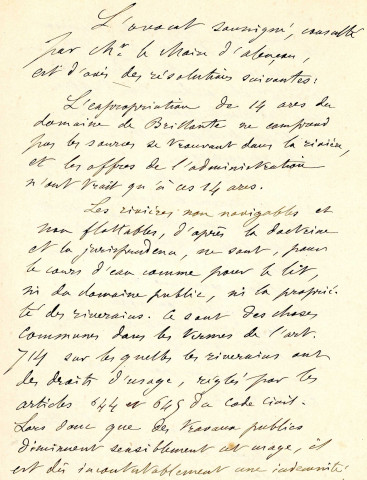 L'avocat soussigné, consulté
par Mr. le Maire d'Alençon,
est d'avis des résolutions suivantes:
L'expropriation de 14 ares du
domaine de Brillante ne comprend
pas les sources se trouvant dans la rivière,
et les offres de l'administration
n'ont trait qu'à ces 14 ares.
Les rivières non navigables et
non flottables, d'après la doctrine
et la jurisprudence, ne sont, pour
le cours d'eau comme pour le lit,
ni du domaine public, ni la propriè-
té des riverains. Ce sont des choses
communes dans les termes de l'art.
714 sur lesquelles les riverains ont
des droits d'usage, réglés par les
articles 644 et 645 du Code Civil.
Lors donc que des travaux publics
diminuent sensiblement cet usage, il
est dû incontestablement une indemnité